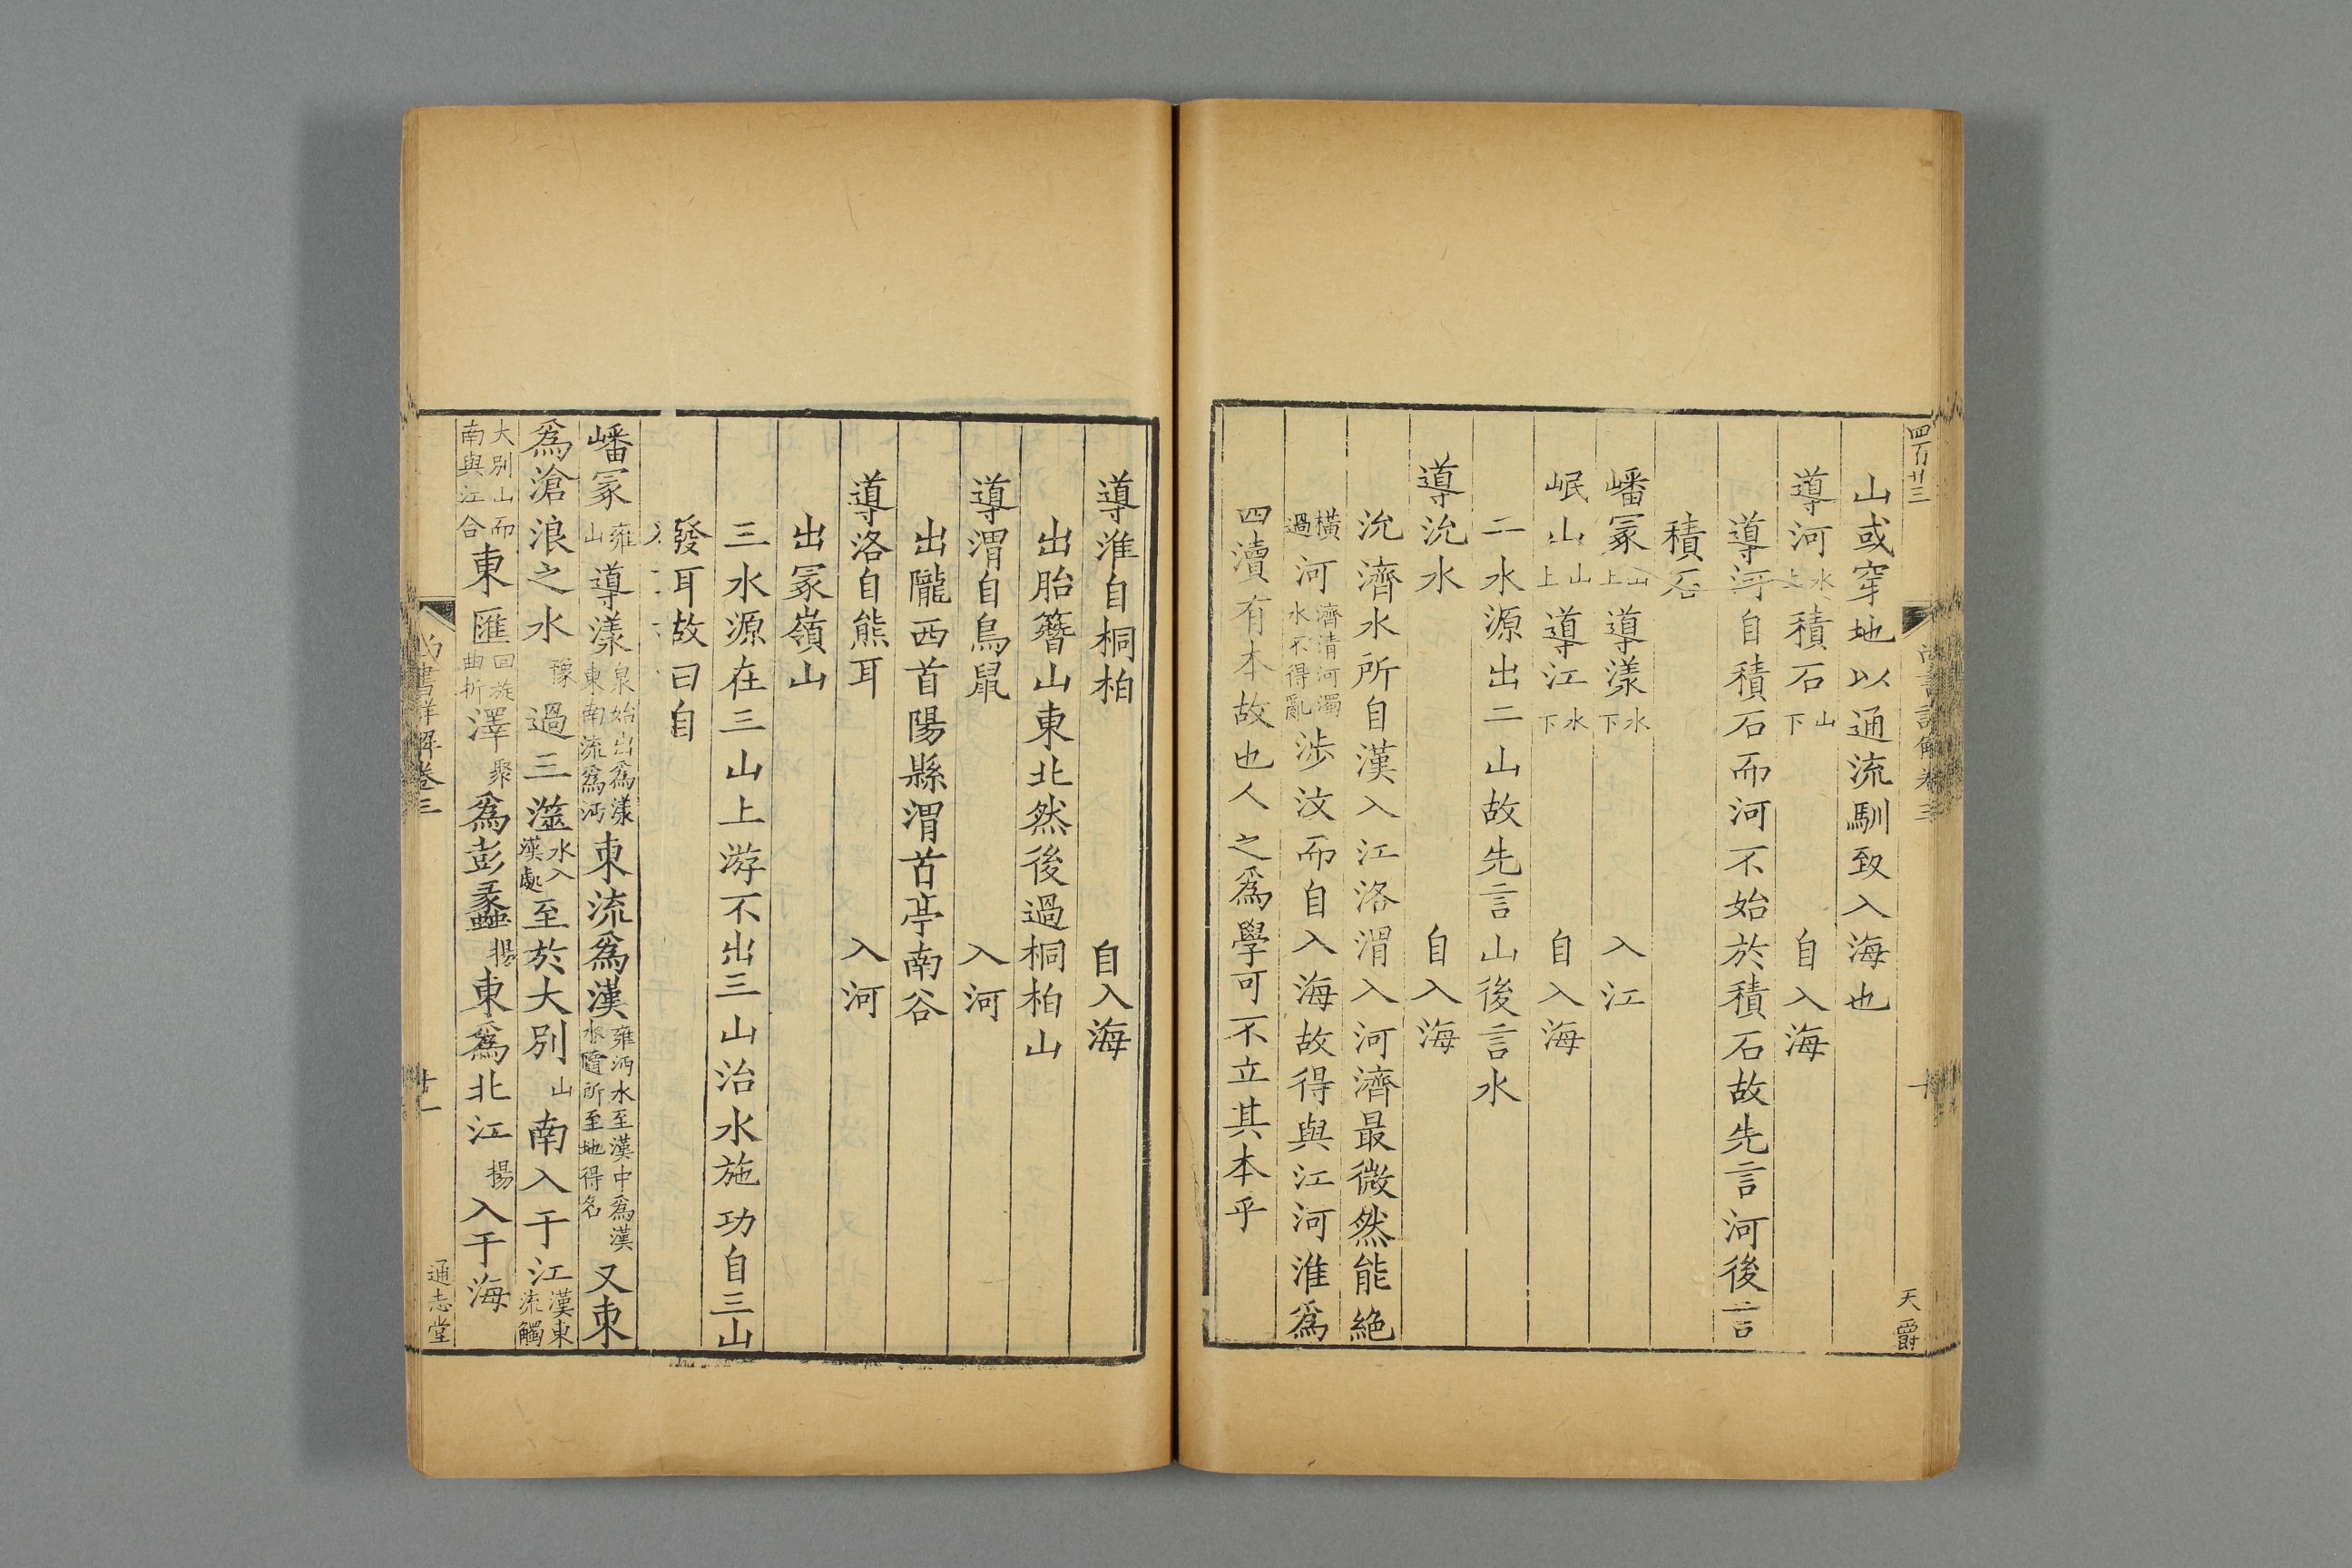 四百廿三
天爵
山或穿地以通流馴致入海也
導河水上積石山下自入海
導河自積石而河不始於積石故先言河後言
積石
嶓冢山上導漾水下入江
岷山山上導江水下自入海
二水源出二山故先言山後言水
導沇水自入海
沇濟水所自漢入江洛渭入河濟最微然能絶
橫過河濟清河濁水不得亂渉汶而自入海故得與江河淮爲
四瀆有本故也人之爲學可不立其本乎
導淮自桐柏自入海
出胎簪山東北然後過桐柏山
導渭自鳥鼠入河
出隴西首陽縣渭首亭南谷
導洛自熊耳入河
出冢嶺山
三水源在三山上游不出三山治水施功自三山
發耳故曰自
嶓冢雍山導漾泉始出爲漾東南流爲沔東流爲漢雍沔水至漢中爲漢水隨所至地得名又東
爲滄浪之水豫過三澨水入漢處至於大別山南入于江漢東流觸
大別山而南與江合東匯回旋曲折澤聚爲彭蠡揚東爲北江揚入于海
尚書詳解卷三
十一
通志堂